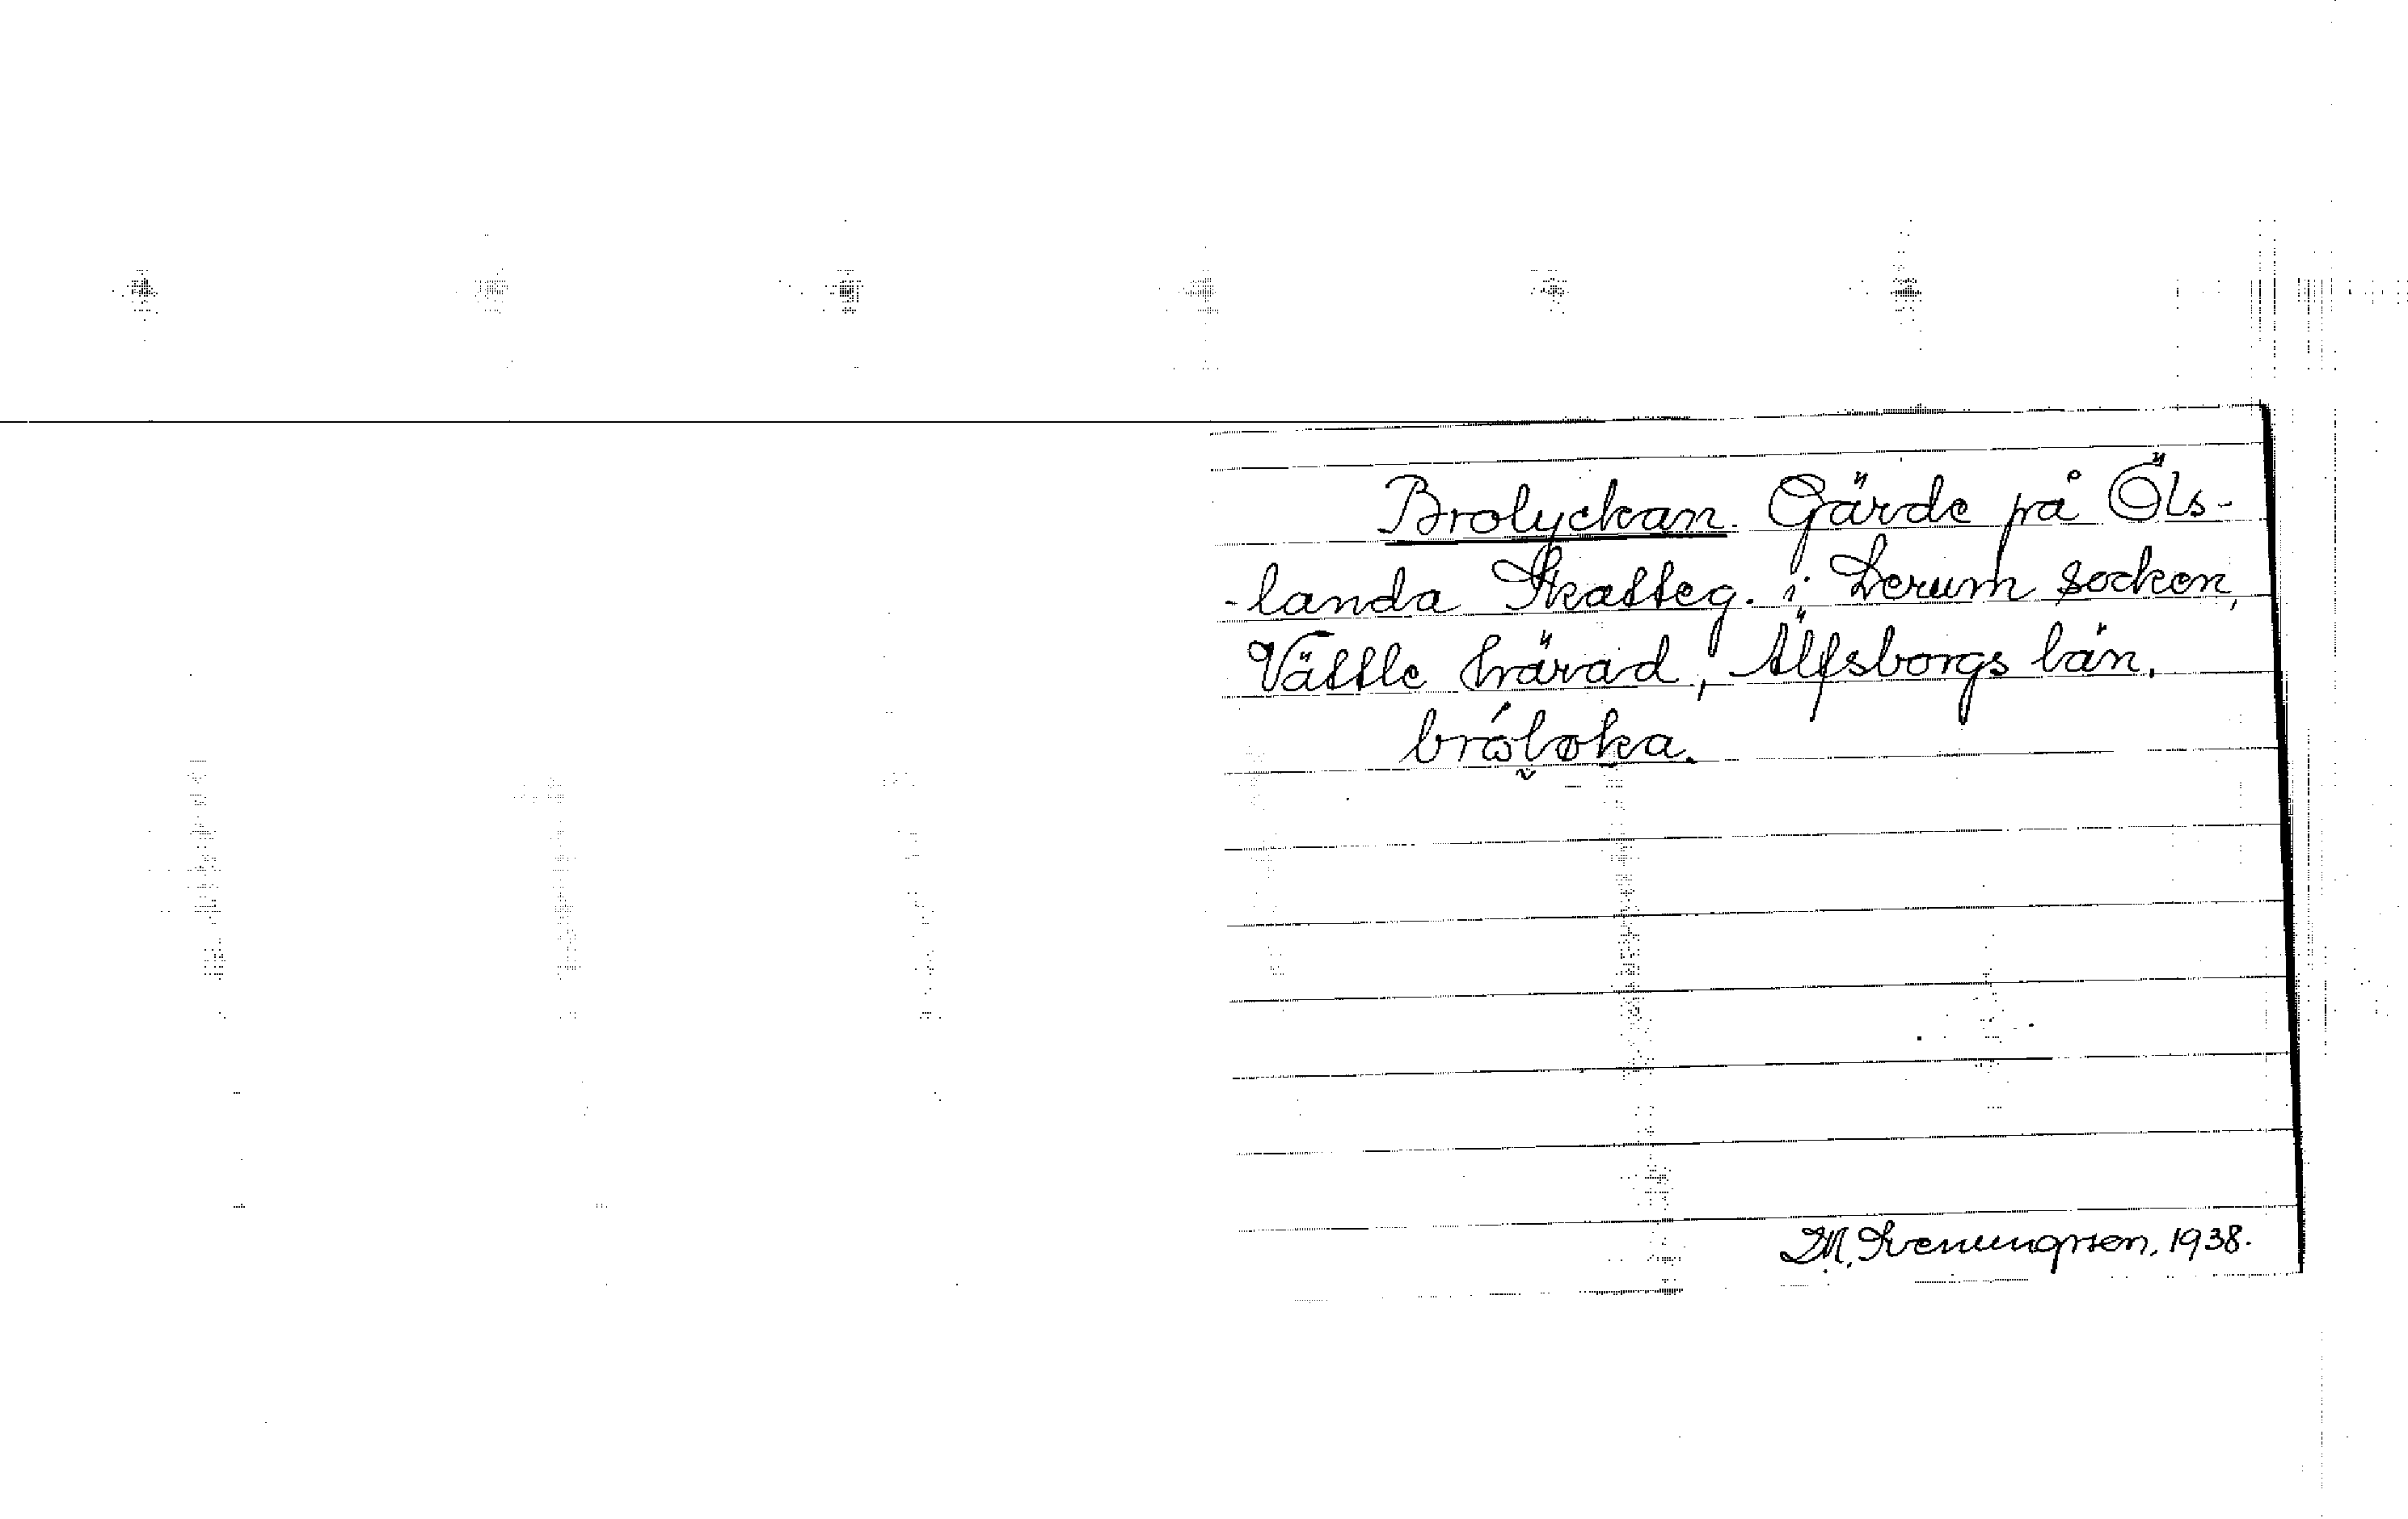 Brolyckan. Gärde på Öls-
-landa Skatteg. i Lerum socken,
Vättle härad, Älfsborgs län.
bró̬løka.
M. Svenungsson, 1938.